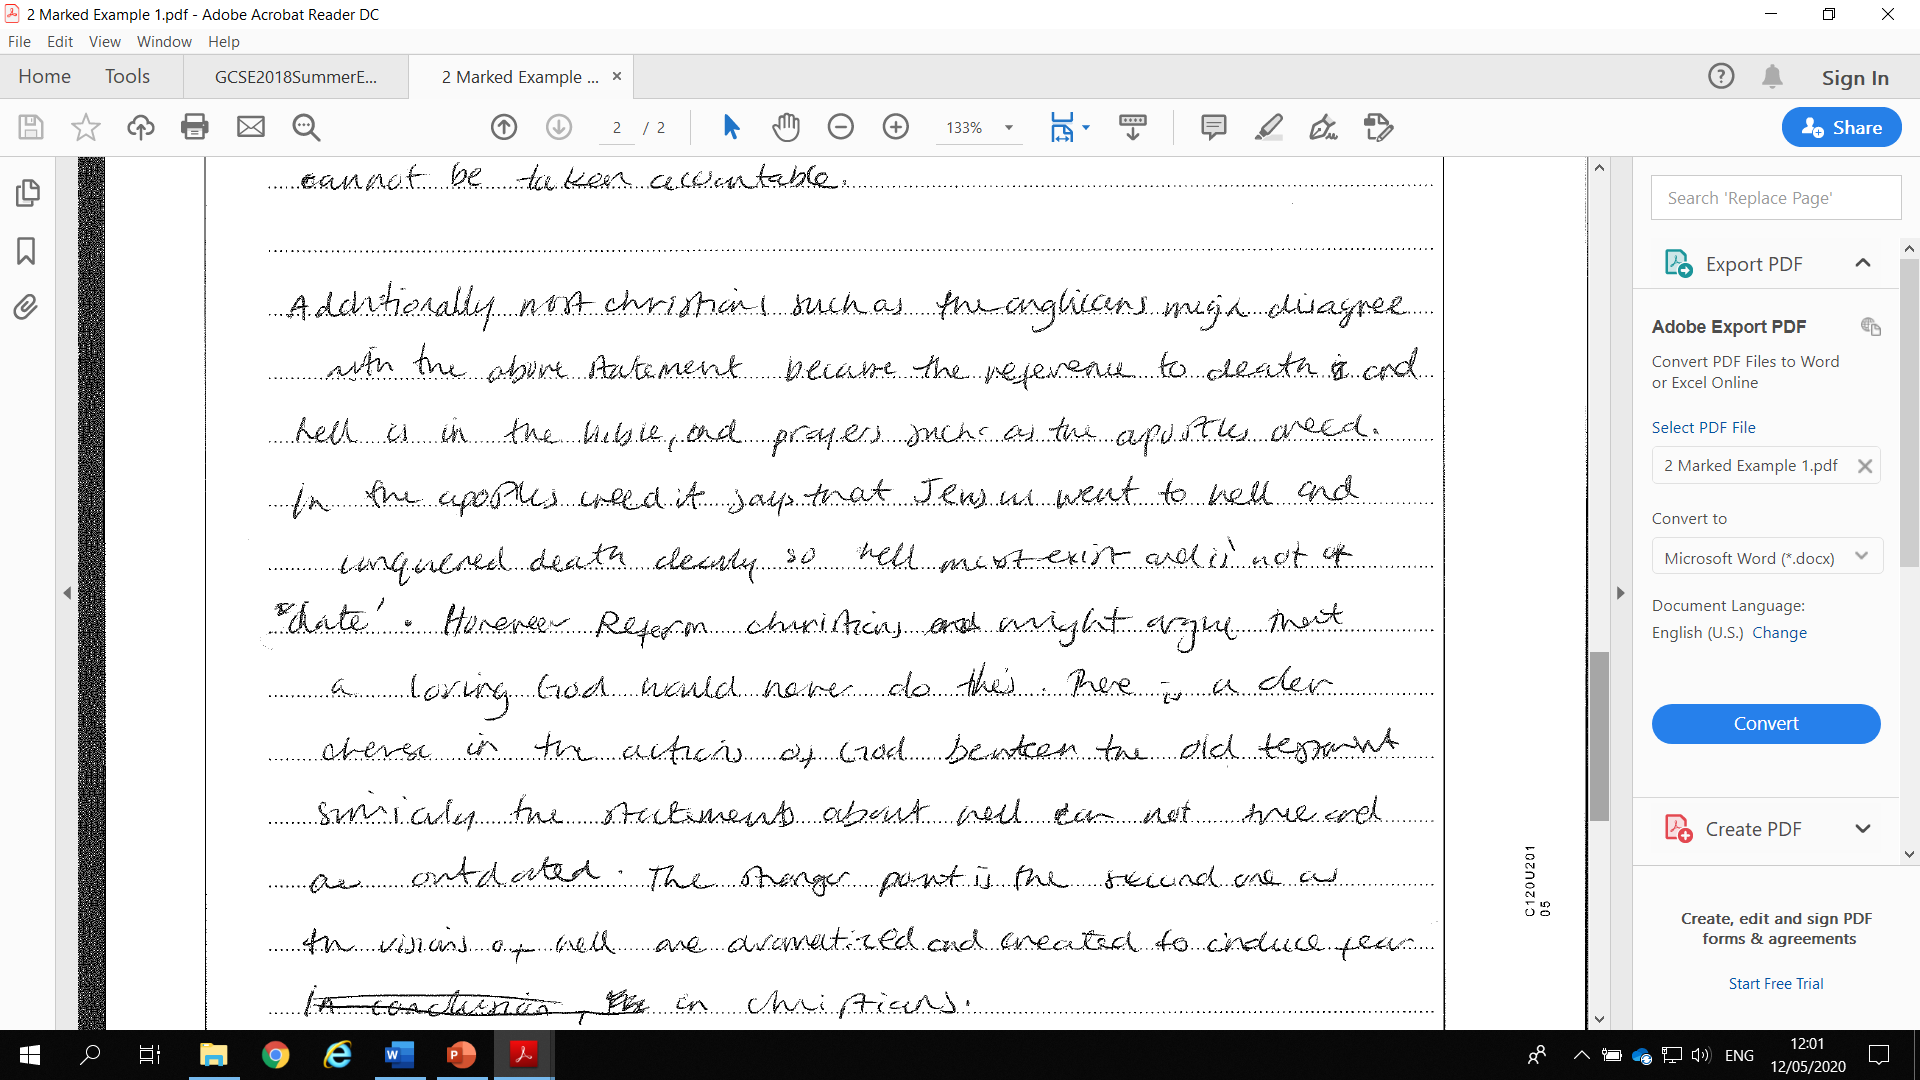 2 Marked Example 1.pdf - Adobe Acrobat Reader DC
File Edit View Window Help
Home Tools GCSE2018SummerE... 2 Marked Example ... ×
Sign In
2 / 2 133% Share
cannot be taken accountable.
Additionally most christians such as the anglicans might disagree
with the above statement because the reference to death and
hell is in the bible, and prayers such as the apostles creed.
In the apostles creed it says that Jesus went to hell and
conquered death clearly so hell must exist and is not of
'date'. However Reform christians might argue that
a loving God would never do this. There is a
in the actions of God between the old
the statements about hell can not true and
outdated. The stronger point is the second one as
visions of hell are dramatized and created to induce fear
In conclusion, in christians.
C120U201
05
Search 'Replace Page'
Export PDF
Adobe Export PDF
Convert PDF Files to Word
or Excel Online
Select PDF File
2 Marked Example 1.pdf
Convert to
Microsoft Word (*.docx)
Document Language:
English (U.S.) Change
Convert
Create PDF
Create, edit and sign PDF
forms & agreements
Start Free Trial
ENG
12:01
12/05/2020